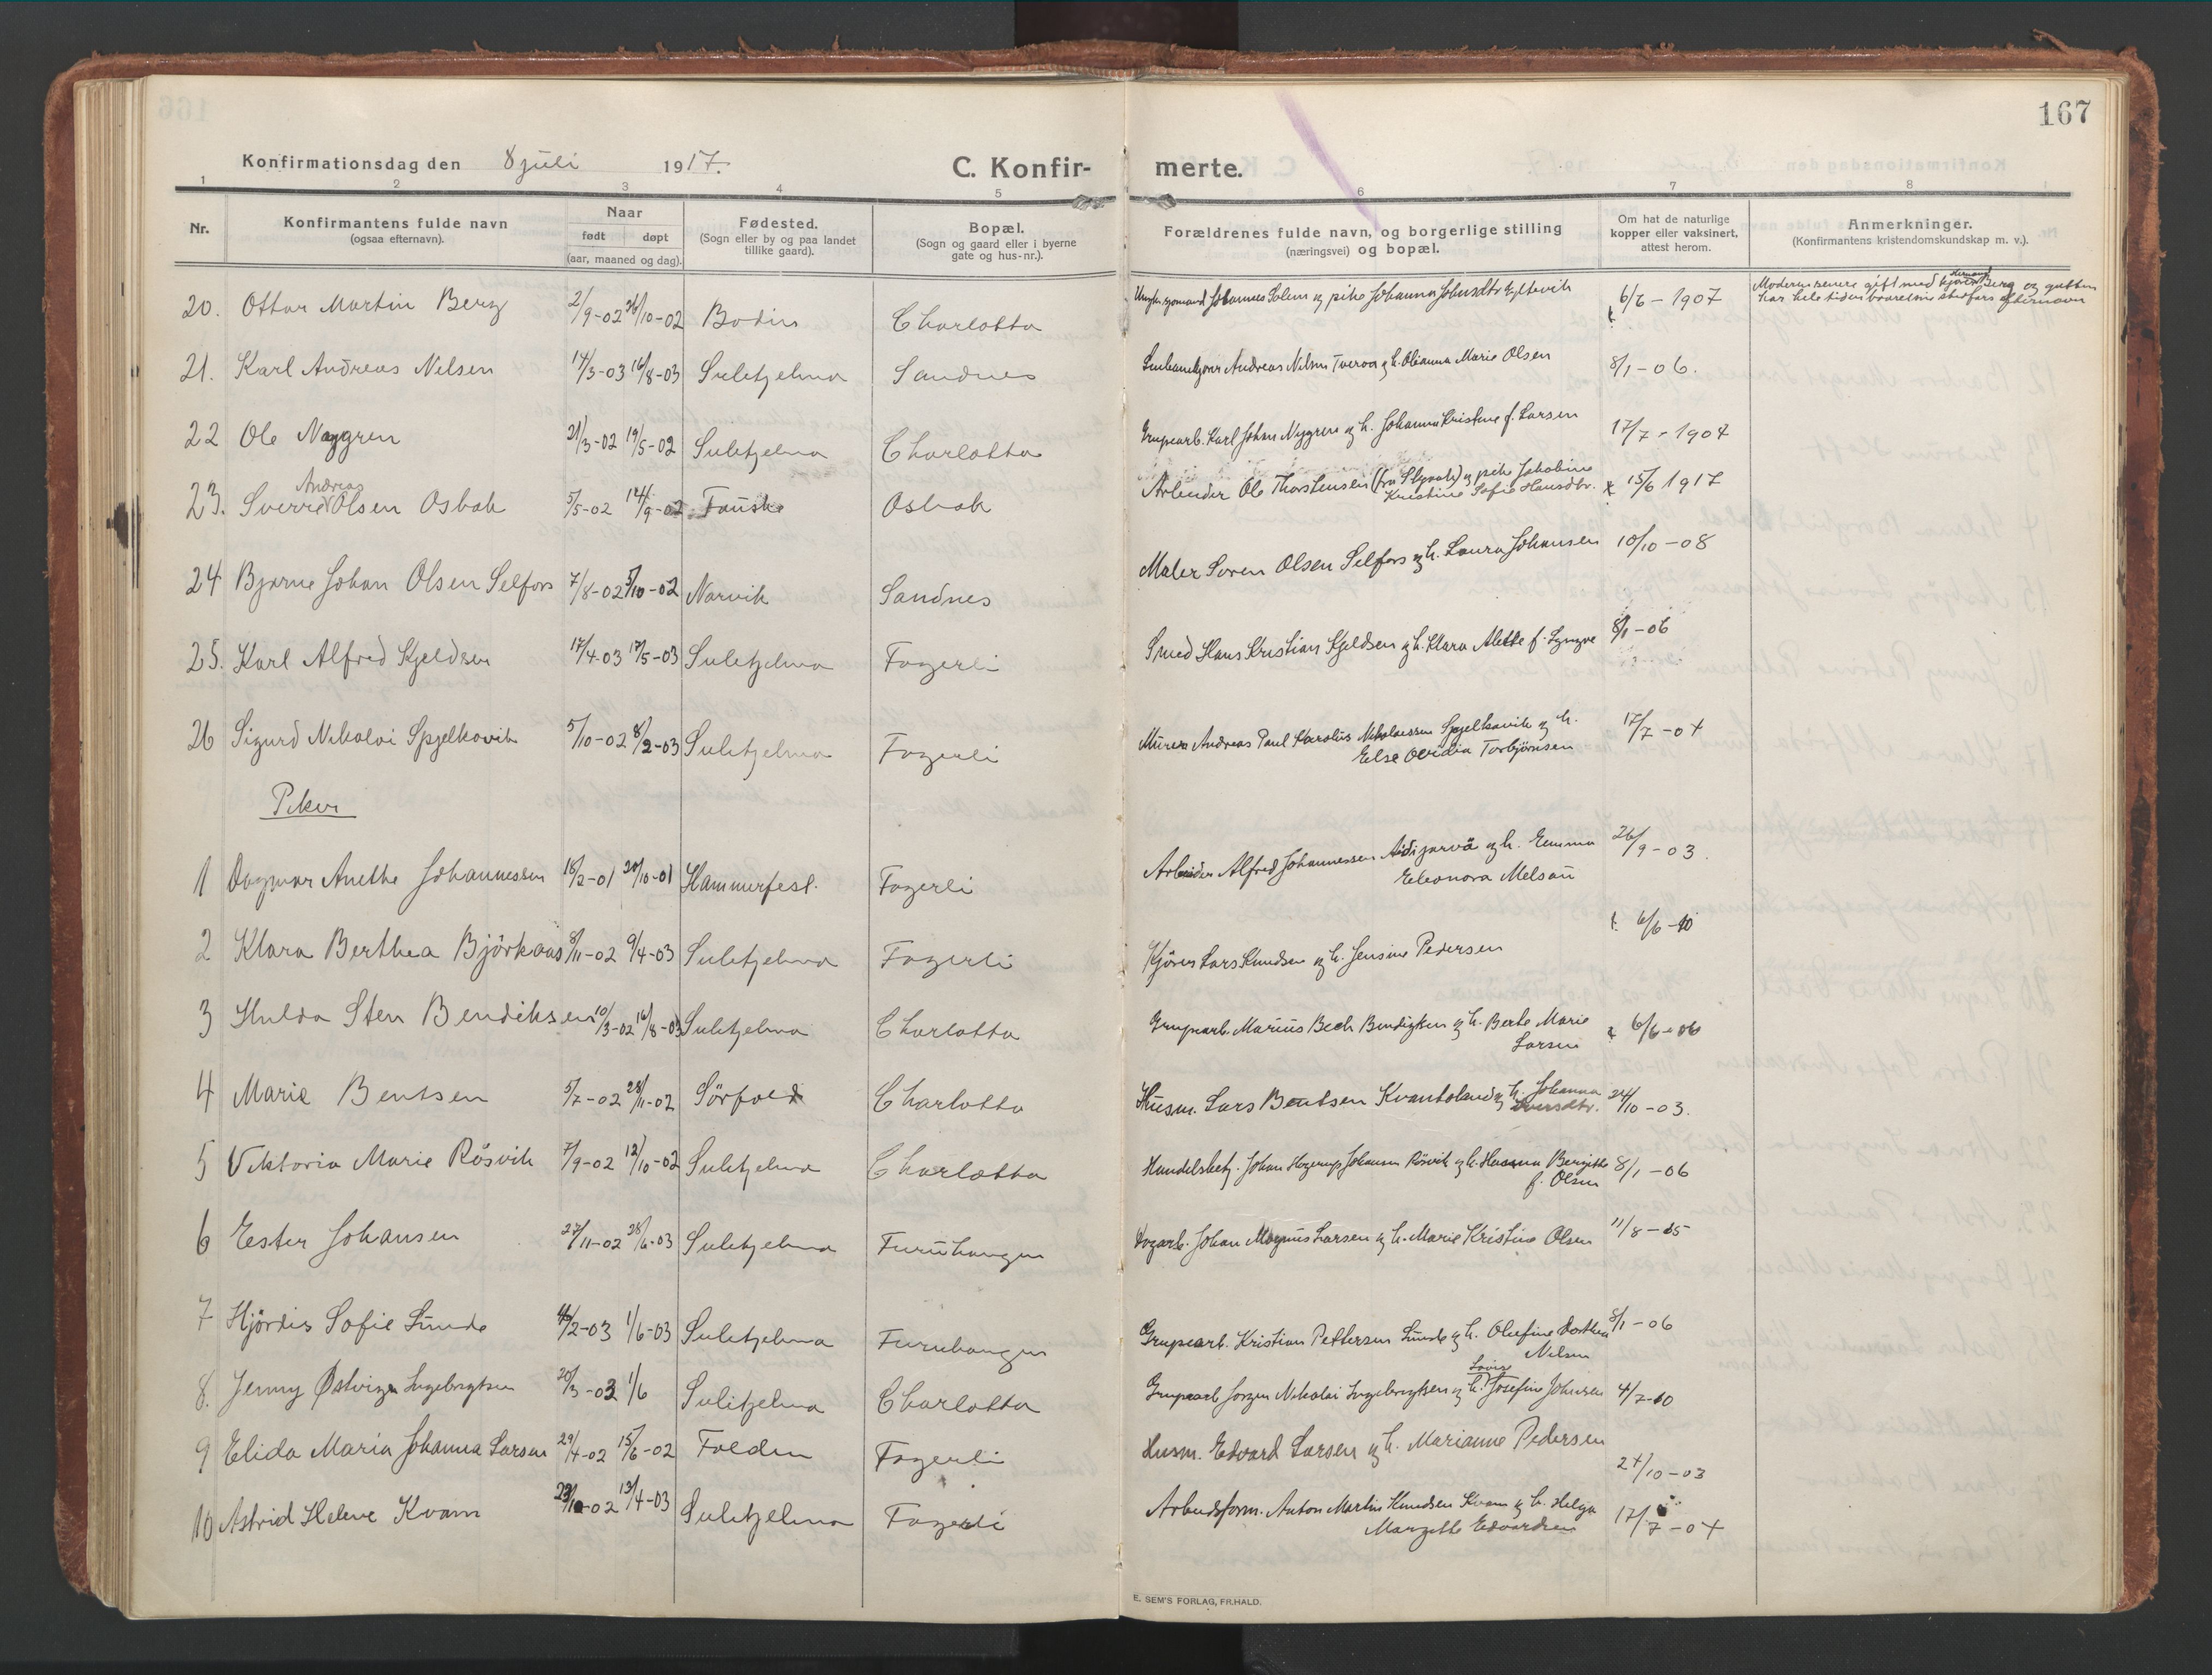 167
Konfirmationsdag den 8 juli 1917. C. Konfir- merte.
1 2 3 4 5 6 7 8
Nr. Konfirmantens fulde navn (ogsaa efternavn). Naar født døpt (aar, maaned og dag). Fødested. (Sogn eller by og paa landet tillike gaard). Bopæl. (Sogn og gaard eller i byerne gate og hus-nr.). Forældrenes fulde navn, og borgerlige stilling (næringsvei) og bopæl. Om hat de naturlige kopper eller vaksinert, attest herom. Anmerkninger. (Konfirmantens kristendomskundskap m. v.).
20. Ottar Martin Berg 2/9-02 26/10-02 Bodin Charlotta Johannes Solem og pike Johanna Johnsdtr 6/6-1907 Moderen senere gift med Berg og gutten
har hele tiden baaret sin stedfars efternavn
21. Karl Andreas Nelsen 14/3-03 16/8-03 Sulitjelma Sandnes Andreas Nelsen Tveraa og h. Olianna Marie Olsen 8/1-06.
22 Ole Nygren 21/3-02 19/5-02 Sulitjelma Charlotta Grupearb. Karl Johan Nygren og h. Johanna Kristine f. Larsen 17/7-1904
23. Sverre Andreas Olsen Osbak 5/5-02 14/9-02 Fauske Osbak Arbeider Ole Thorstensen (fra ) og pike Jakobine
Kristine Sofie Hansdtr. 15/6 1917
24 Bjarne Johan Olsen Selfors 7/8-02 5/10-02 Narvik Sandnes Maler Soren Olsen Selfors og h. Laura Johansen 10/10-08
25. Karl Alfred Kjeldsen 17/4-03 17/5-03 Sulitjelma Fagerli Smed Hans Kristian Kjeldsen og h. Klara Alette f. Lyngve 8/1-06
26 Sigurd Nikolai Spjelkavik 5/10-02 8/2-03 Sulitjelma Fagerli Murer Andreas Paul Karolus Nikolaissen Spjelkavik og h.
Else Ovidia Torbjörnsen 17/7-04
Piker
1 Dagmar Anethe Johannessen 18/2-01 20/10-01 Hammerfest. Fagerli Arbeider Alfred Johannessen Aidijarvä og h. Emma
Eleonora Melsau 26/9-03.
2 Klara Berthea Björkaas 8/11-02 9/4-03 Sulitjelma Fagerli Kjörer Lars Knudsen og h. Jensine Pedersen 6/6-10
3 Hulda Sten Bendiksen 10/3-02 16/8-03 Sulitjelma Charlotta Grupearb. Marius Bech Bendigsen og h. Berte Marie
Larsen 6/6-06
4 Marie Bentsen 5/7-02 28/11-02 Sörfold Charlotta Husm. Lars Bentsen Kvantoland og h. Johanna
Iversdtr. 24/10-03.
5 Viktoria Marie Rösvik 7/9-02 12/10-02 Sulitjelma Charlotta Handelsbetj. Johan Hagerup Johansen Rösvik og h. Hassina Bergitte
f. Olsen 8/1-06
6 Ester Johansen 27/11-02 28/6-03 Sulitjelma Furuhaugen Dagarb. Johan Magnus Larsen og h. Marie Kristine Olsen 11/8-15
7 Hjördis Sofie Lunde /2-03 1/6-03 Sulitjelma Furuhaugen Grupearb. Kristian Pettersen Lunde og h. Olufine Dorthea
Nilsen 8/1-06
8. Jenny Østvigen Ingebrigtsen 20/3-03 1/6 Sulitjelma Charlotta Grupearb Jorgen Nikolai Ingebrigtsen og h. Lovise Josefine Johnsen 4/7-10
9 Elida Maria Johanna Larsen 29/4-02 15/6-02 Folden Fagerli Husm. Edvard Larsen og h. Marianne Pedersen 24/10-03
10 Astrid Helene Kvam 23/10-02 13/4-03 Sulitjelma Fagerli Arbeidsform. Anton Martin Knudsen Kvam og h. Helga
Margitte Edvardsen 17/7-04
E. SEM'S FORLAG, FR.HALD.